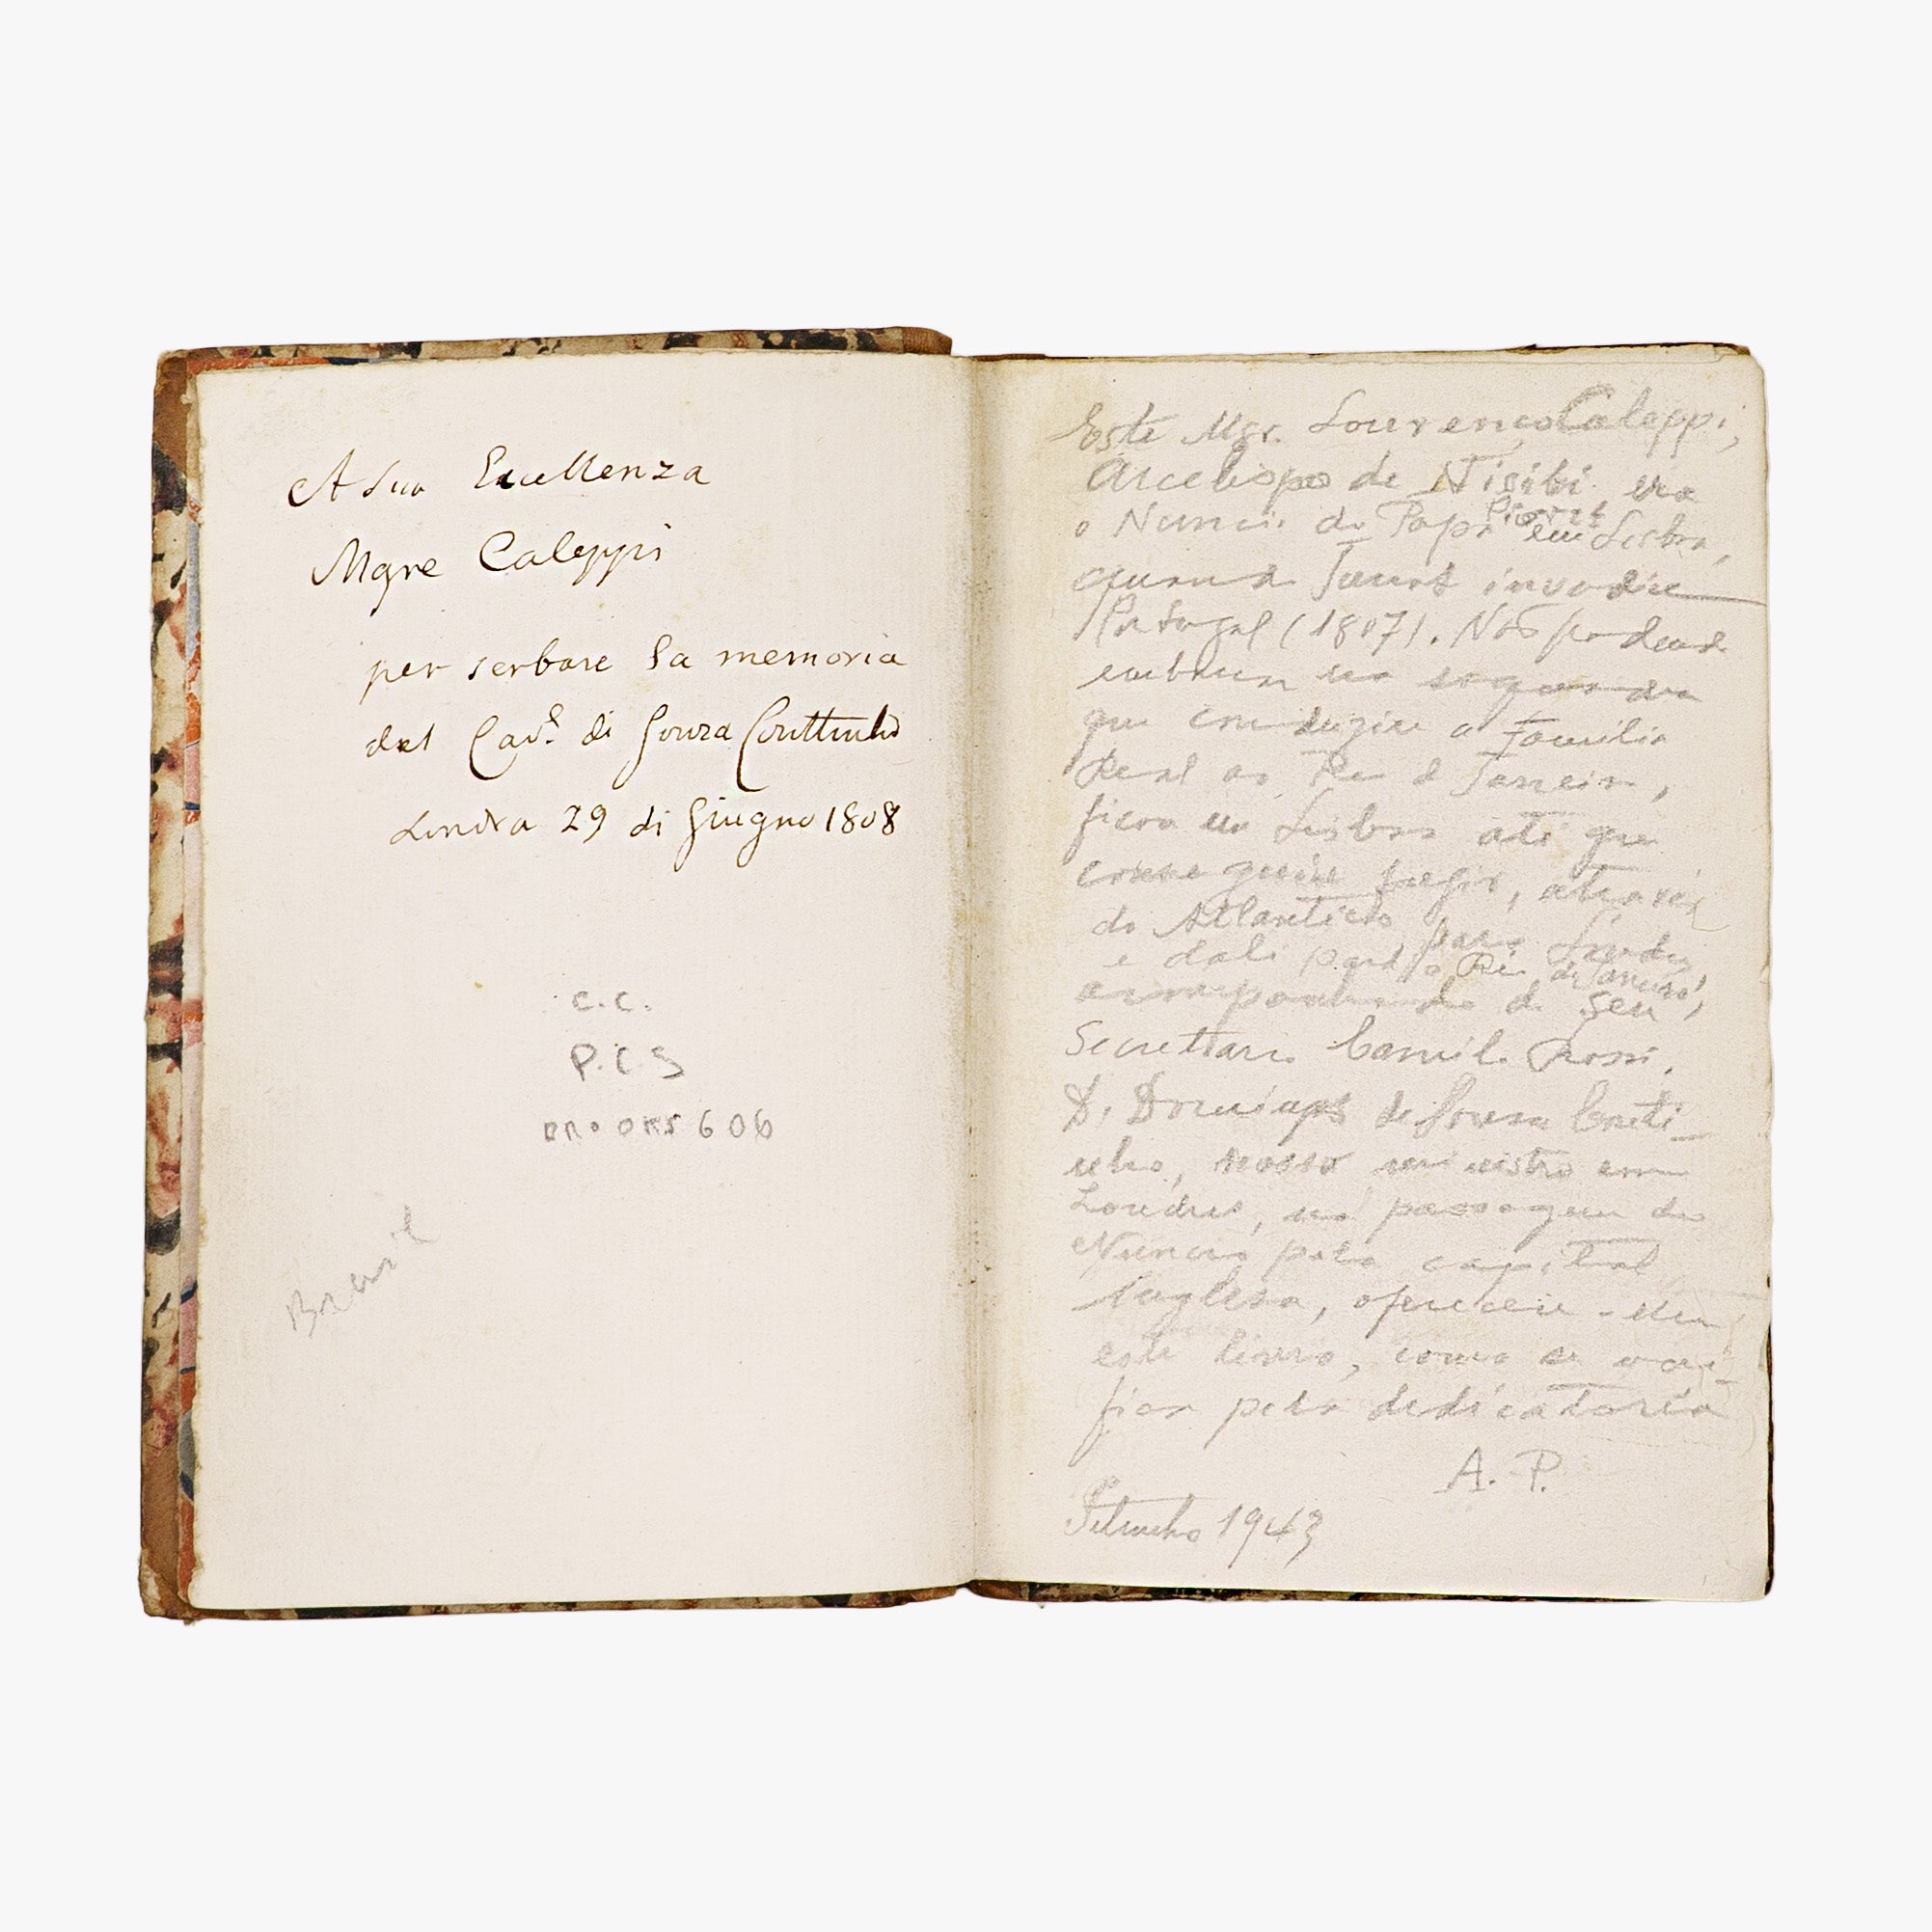 A Sua Eccellenza
Mgre Caleppi
per serbare la memoria
del Cav.e di Souza Couttinho
Londra 29 di Giugno 1808
C.C.
P.C.S
606
Brasil
Este Mgr. Lourenço Caleppi,
Arcebispo de Nisibi, era
o Nuncio do Papa Pio VII em Lisboa,
quando Junot invadiu
Portugal (1807). Não podendo
embarcar na esquadra
que conduziu a Familia
Real ao Rio de Janeiro,
ficou em Lisboa até que
conseguiu fugir, através
do Atlantico para Londres,
e dali para o Rio de Janeiro,
acompanhado do seu
Secrettario Camilo Rossi.
D. Domingos de Sousa Couti-
nho, nosso ministro em
Londres, na passagem do
Nuncio pela capital
inglesa, ofereceu-lhe
este livro, como se veri-
fica pela dedicatoria
A. P.
Setembro 1943